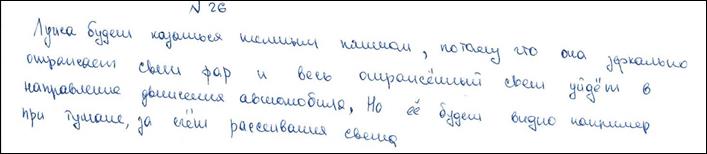 N 26
Лужа будет казаться тёмным пятном, потому что она зеркально
отражает свет фар и весь отражённый свет уйдёт в
направление движения автомобиля, Но её будет видно например
при тумане, за счёт рассеивания света